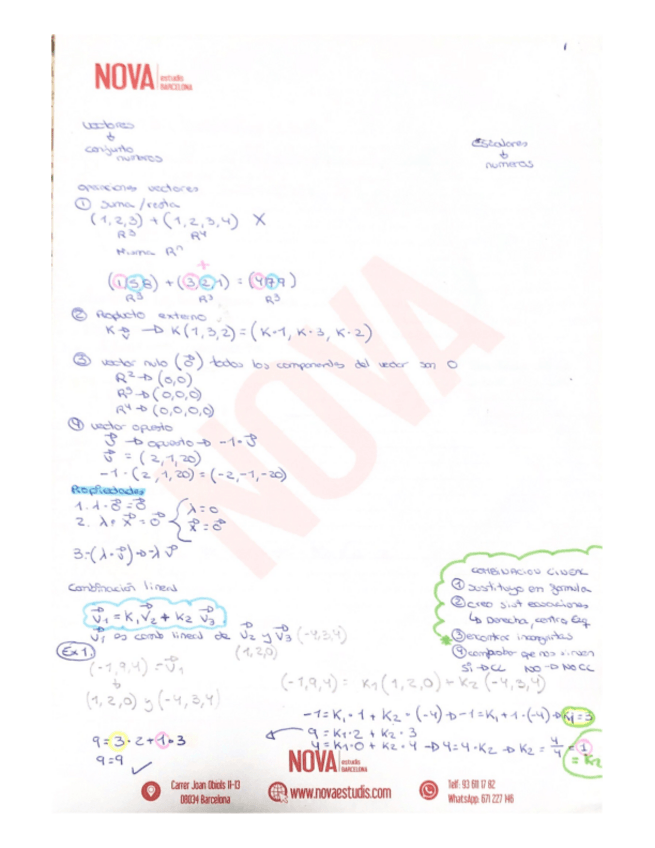 1
NOVA estudis BARCELONA
vectores
conjunto
numeros
Escalares
numeros
operaciones vectores
① suma/resta
(1,2,3) + (1,2,3,4) X
R³ R⁴
Misma Rⁿ
+
(1 5 8) + (3 2 1) = (4 7 9)
R³ R³ R³
② Producto externo
K·v → K(1,3,2) = (K·1, K·3, K·2)
③ vector nulo (0⃗) todos los componentes del vector son 0
R² → (0,0)
R³ → (0,0,0)
R⁴ → (0,0,0,0)
④ vector opuesto
v⃗ → opuesto → -1·v⃗
v⃗ = (2,1,20)
-1·(2,1,20) = (-2,-1,-20)
Propiedades
1. λ·0⃗ = 0⃗
2. λ·x⃗ = 0⃗ { λ=0
x⃗ = 0⃗
3. -(λ·v⃗) → -λ v⃗
Combinación lineal
v⃗₁ = K₁v⃗₂ + K₂ v⃗₃
v⃗₁ es comb lineal de v⃗₂ y v⃗₃ (-4,3,4)
(1,2,0)
COMBINACION LINEAL
① Sustituyo en formula
② creo sist ecuaciones
↳ derecha, centro, izq
③ encontrar incognitas
④ comprobar que nos sirven
SI → CL NO → NO CL
Ex 1.
(-1,9,4) = v⃗₁
(1,2,0) y (-4,3,4)
(-1,9,4) = K₁(1,2,0) + K₂(-4,3,4)
-1 = K₁·1 + K₂·(-4) → -1 = K₁ + 1·(-4) → K₁ = 3
9 = K₁·2 + K₂·3
4 = K₁·0 + K₂·4 → 4 = 4·K₂ → K₂ = 4/4 = 1 = K₂
9 = 3·2 + 1·3
9 = 9 ✓
NOVA estudis BARCELONA
Carrer Joan Obiols 11-13
08034 Barcelona
www.novaestudis.com
Telf: 93 611 17 82
WhatsApp: 671 227 146
NOVA